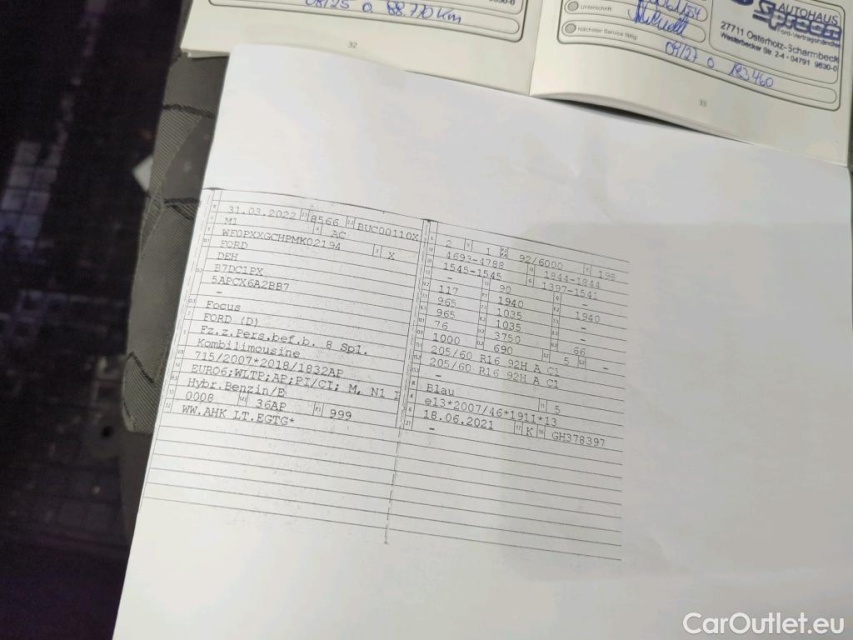 08/25 o. 88.770 Km
32
Unterschrift
Nächster Service fällig
09/27 o. 123.460
AUTOHAUS
Ford-Vertragshändler
27711 Osterholz-Scharmbeck
Westerbecker Str. 2-4 - 04791 9630-0
33
31.03.2022 8566 BUC00110X
M1 AC
WF0PXXGCHPMK02194 X
FORD
DEH
B7DC1PX
5APCX6AZBB7
-
Focus
FORD (D)
Fz.z.Pers.bef.b. 8 Spl.
Kombilimousine
715/2007*2018/1832AP
EURO6;WLTP;AP;PI/CI; M, N1 I
Hybr.Benzin/E
0008 36AP 999
WW.AHK LT.EGTG*
2 1 92/6000 198
4693-4788 1844-1844
1545-1545 1397-1541
- 90 -
117 1940 1940
965 1035 -
965 1035 -
76 3750 66
1000 690 5 -
205/60 R16 92H A C1
205/60 R16 92H A C1
-
Blau 5
e13*2007/46*1911*13
18.06.2021 K GH378397
-
CarOutlet.eu